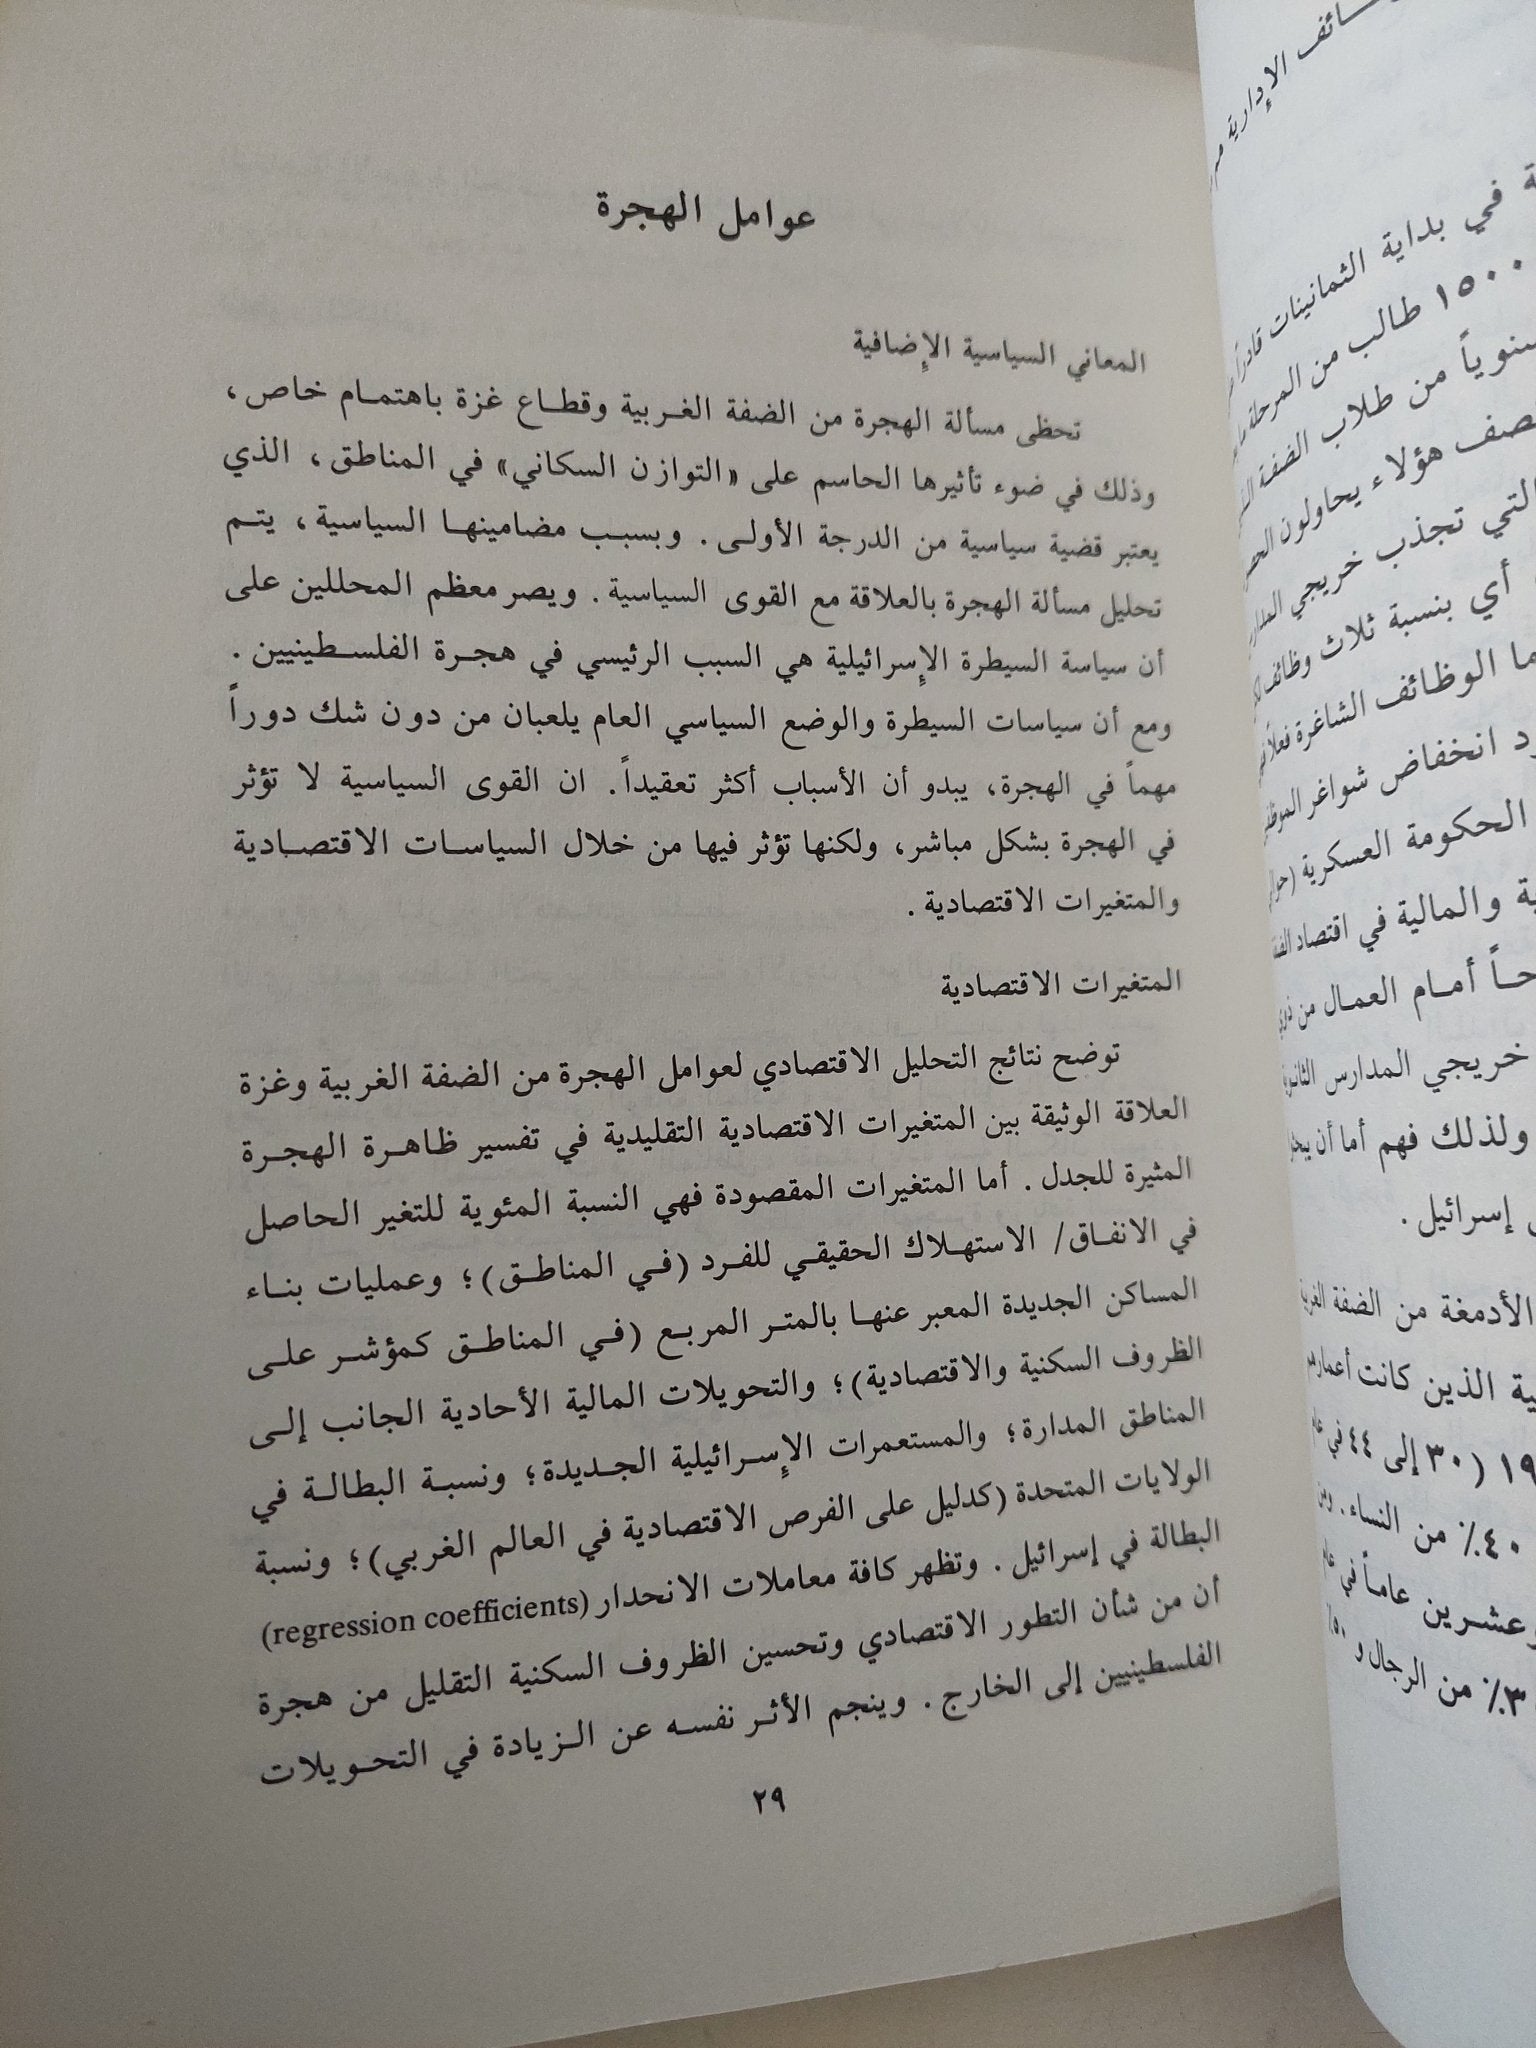 عوامل الهجرة
المعاني السياسية الإضافية
تحظى مسألة الهجرة من الضفة الغربية وقطاع غزة باهتمام خاص،
وذلك في ضوء تأثيرها الحاسم على «التوازن السكاني» في المناطق، الذي
يعتبر قضية سياسية من الدرجة الأولى. وبسبب مضامينها السياسية، يتم
تحليل مسألة الهجرة بالعلاقة مع القوى السياسية. ويصر معظم المحللين على
أن سياسة السيطرة الإسرائيلية هي السبب الرئيسي في هجرة الفلسطينيين.
ومع أن سياسات السيطرة والوضع السياسي العام يلعبان من دون شك دوراً
مهماً في الهجرة، يبدو أن الأسباب أكثر تعقيداً. ان القوى السياسية لا تؤثر
في الهجرة بشكل مباشر، ولكنها تؤثر فيها من خلال السياسات الاقتصادية
والمتغيرات الاقتصادية.
المتغيرات الاقتصادية
توضح نتائج التحليل الاقتصادي لعوامل الهجرة من الضفة الغربية وغزة
العلاقة الوثيقة بين المتغيرات الاقتصادية التقليدية في تفسير ظاهرة الهجرة
المثيرة للجدل. أما المتغيرات المقصودة فهي النسبة المئوية للتغير الحاصل
في الانفاق/ الاستهلاك الحقيقي للفرد (في المناطق)؛ وعمليات بناء
المساكن الجديدة المعبر عنها بالمتر المربع (في المناطق كمؤشر على
الظروف السكنية والاقتصادية)؛ والتحويلات المالية الأحادية الجانب إلى
المناطق المدارة؛ والمستعمرات الإسرائيلية الجديدة؛ ونسبة البطالة في
الولايات المتحدة (كدليل على الفرص الاقتصادية في العالم الغربي)؛ ونسبة
البطالة في إسرائيل. وتظهر كافة معاملات الانحدار (regression coefficients)
أن من شأن التطور الاقتصادي وتحسين الظروف السكنية التقليل من هجرة
الفلسطينيين إلى الخارج. وينجم الأثر نفسه عن الزيادة في التحويلات
٢٩
الإدارية
في بداية الثمانينات قادراً
١٥٠٠ طالب من المرحلة
من طلاب الضفة
هؤلاء يحاولون
التي تجذب خريجي
أي بنسبة ثلاث وظائف
الوظائف الشاغرة فعلاً
انخفاض شواغر
الحكومة العسكرية
والمالية في اقتصاد
أمام العمال من ذوي
خريجي المدارس
ولذلك فهم أما أن
إسرائيل.
الأدمغة من الضفة
الذين كانت
(٣٠ إلى ٤٤ في
٤٠٪ من النساء.
وعشرين عاماً في
٣٪ من الرجال و ٥٠٪